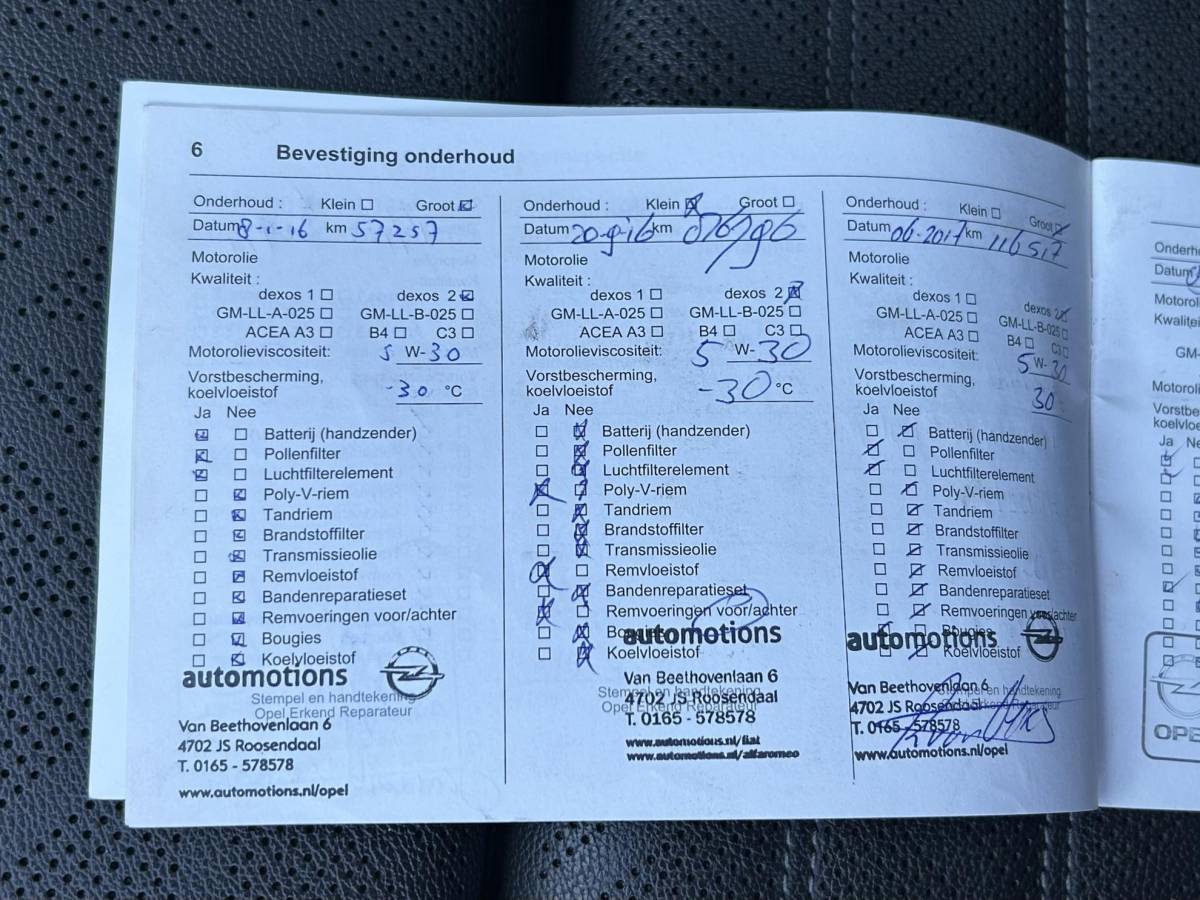 6 Bevestiging onderhoud
Onderhoud : Klein Groot
Datum 8-1-16 km 57257
Motorolie
Kwaliteit :
dexos 1 dexos 2
GM-LL-A-025 GM-LL-B-025
ACEA A3 B4 C3
Motorolieviscositeit: 5 W-30
Vorstbescherming,
koelvloeistof -30 °C
Ja Nee
Batterij (handzender)
Pollenfilter
Luchtfilterelement
Poly-V-riem
Tandriem
Brandstoffilter
Transmissieolie
Remvloeistof
Bandenreparatieset
Remvoeringen voor/achter
Bougies
Koelvloeistof
automotions
Stempel en handtekening
Opel Erkend Reparateur
Van Beethovenlaan 6
4702 JS Roosendaal
T. 0165 - 578578
www.automotions.nl/opel
Onderhoud : Klein Groot
Datum 20-9-16 km
Motorolie
Kwaliteit :
dexos 1 dexos 2
GM-LL-A-025 GM-LL-B-025
ACEA A3 B4 C3
Motorolieviscositeit: 5 W-30
Vorstbescherming,
koelvloeistof -30 °C
Ja Nee
Batterij (handzender)
Pollenfilter
Luchtfilterelement
Poly-V-riem
Tandriem
Brandstoffilter
Transmissieolie
Remvloeistof
Bandenreparatieset
Remvoeringen voor/achter
Bougies
automotions
Koelvloeistof
Van Beethovenlaan 6
Stempel en handtekening
4702 JS Roosendaal
Opel Erkend Reparateur
T. 0165 - 578578
www.automotions.nl/fiat
www.automotions.nl/alfaromeo
Onderhoud : Klein Groot
Datum 06-2017 km 116517
Motorolie
Kwaliteit :
dexos 1 dexos 2
GM-LL-A-025 GM-LL-B-025
ACEA A3 B4 C3
Motorolieviscositeit: 5 W-30
Vorstbescherming,
koelvloeistof 30
Ja Nee
Batterij (handzender)
Pollenfilter
Luchtfilterelement
Poly-V-riem
Tandriem
Brandstoffilter
Transmissieolie
Remvloeistof
Bandenreparatieset
Remvoeringen voor/achter
Bougies
automotions
Koelvloeistof
Van Beethovenlaan 6
Stempel en handtekening
4702 JS Roosendaal
Erkend Reparateur
T. 0165 - 578578
www.automotions.nl/opel
Onderh
Datum
Motorol
Kwalitei
GM-
Motorol
Vorstbe
koelvloe
Ja Ne
OPE